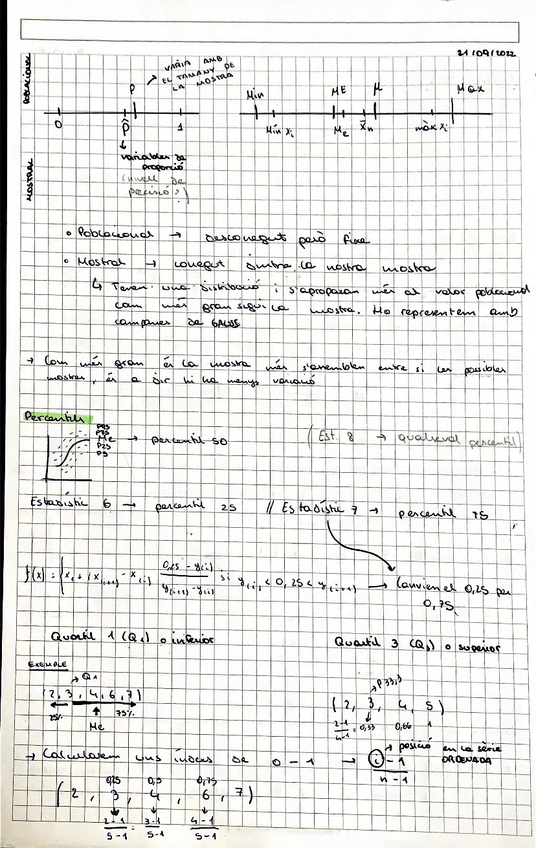 21/09/2022
POBLACIONAL
VARIA AMB
EL TAMANY DE
LA MOSTRA
P
0
p̂
1
variables de
proporció
(nivell de
precisió?)
MOSTRAL
Min
ME
μ
Max
Min xi
Me
x̄n
màx xi
• Poblacional → desconegut però fixe
• Mostral → conegut la nostra mostra
↳ Tenen una distribució i s'apropan més al valor poblacional
com més gran sigui la mostra. Ho representem amb
campanes de GAUSS
→ Com més gran és la mostra més s'assemblen entre si les possibles
mostres, és a dir hi ha menys variació
Percentils
P95
P75
Me → percentil 50
P25
P5
(Est. 8 → qualsevol percentil)
Estadístic 6 → percentil 25 // Estadístic 7 → percentil 75
f(x) = { x(i+1) - x(i) 0,25 - y(i) / y(i+1) - y(i) si y(i) < 0,25 < y(i+1) → Canvien el 0,25 per
0,75
Quartil 1 (Q1) o inferior
Quartil 3 (Q3) o superior
EXEMPLE
Q1
(2, 3, 4, 6, 7)
25% 75%
Me
P33,3
(2, 3, 4, 5)
2-1/4-1 = 0,33 0,66 1
→ Calcularem uns índexs de 0 - 1 → i - 1 / n - 1
→ posició en la sèrie
ORDENADA
0,25 0,5 0,75
(2, 3, 4, 6, 7)
2-1/5-1 = 3-1/5-1 4-1/5-1